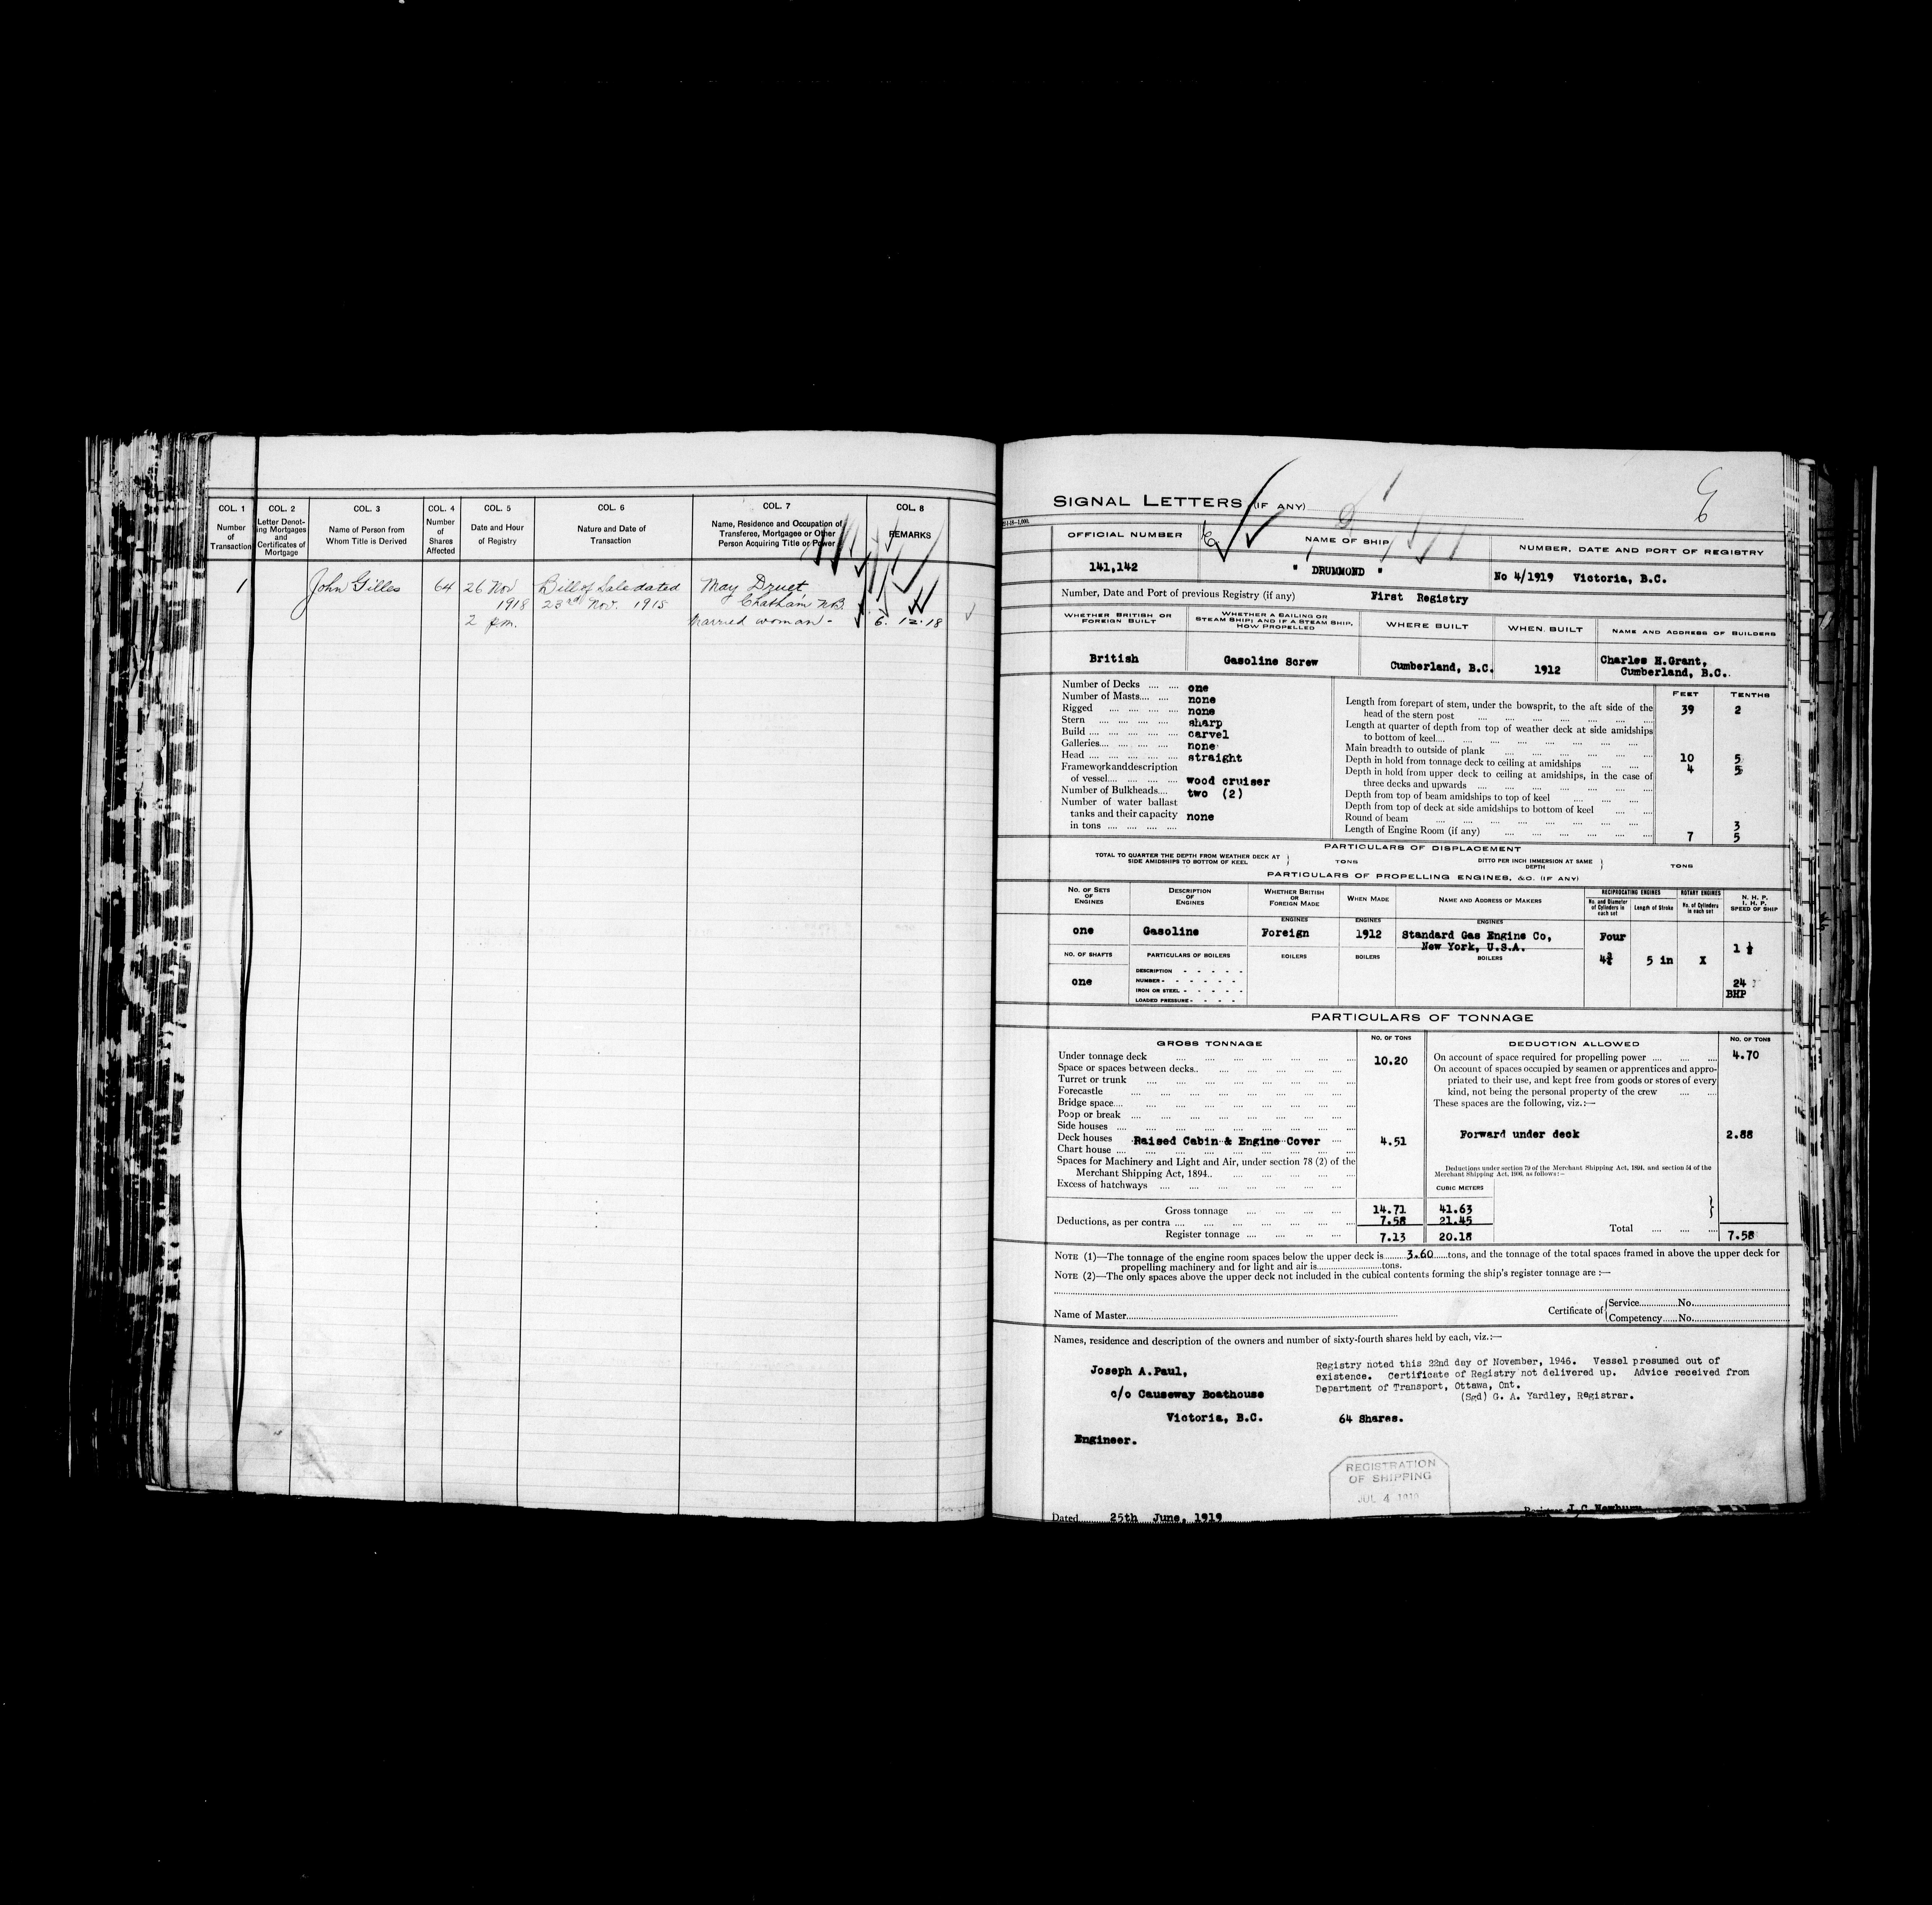 COL. 1
Number
of
Transaction
COL. 2
Letter Denot-
ing Mortgages
and
Certificates of
Mortgage
COL. 3
Name of Person from
Whom Title is Derived
COL. 4
Number
of
Shares
Affected
COL. 5
Date and Hour
of Registry
COL. 6
Nature and Date of
Transaction
COL. 7
Name, Residence and Occupation of
Transferee, Mortgagee or Other
Person Acquiring Title or Power
COL. 8
REMARKS
1 John Gilles 64 26 Nov Bill of Sale dated May Druet,
1918 23rd Nov. 1918 Chatham N.B.
2 p.m. married woman - 6. 12. 18
SIGNAL LETTERS (IF ANY)
OFFICIAL NUMBER
NAME OF SHIP
NUMBER, DATE AND PORT OF REGISTRY
141,142
" DRUMMOND "
No 4/1919 Victoria, B.C.
Number, Date and Port of previous Registry (if any) First Registry
WHETHER BRITISH OR
FOREIGN BUILT
WHETHER A SAILING OR
STEAM SHIP; AND IF A STEAM SHIP,
HOW PROPELLED
WHERE BUILT
WHEN BUILT
NAME AND ADDRESS OF BUILDERS
British
Gasoline Screw
Cumberland, B.C.
1912
Charles H.Grant,
Cumberland, B.C.
Number of Decks .... .... one
Number of Masts.... .... none
Rigged .... .... .... .... none
Stern .... .... .... .... sharp
Build .... .... .... .... carvel
Galleries.... .... .... .... none
Head .... .... .... .... straight
Framework and description
of vessel.... .... .... .... wood cruiser
Number of Bulkheads.... two (2)
Number of water ballast
tanks and their capacity none
in tons .... .... .... ....
FEET TENTHS
Length from forepart of stem, under the bowsprit, to the aft side of the 39 2
head of the stern post
Length at quarter of depth from top of weather deck at side amidships
to bottom of keel....
Main breadth to outside of plank 10 5
Depth in hold from tonnage deck to ceiling at amidships 4 5
Depth in hold from upper deck to ceiling at amidships, in the case of
three decks and upwards
Depth from top of beam amidships to top of keel
Depth from top of deck at side amidships to bottom of keel
Round of beam 3
Length of Engine Room (if any) 7 5
PARTICULARS OF DISPLACEMENT
TOTAL TO QUARTER THE DEPTH FROM WEATHER DECK AT
SIDE AMIDSHIPS TO BOTTOM OF KEEL } TONS
DITTO PER INCH IMMERSION AT SAME
DEPTH } TONS
PARTICULARS OF PROPELLING ENGINES, &C. (IF ANY)
NO. OF SETS
OF
ENGINES
DESCRIPTION
OF
ENGINES
WHETHER BRITISH
OR
FOREIGN MADE
WHEN MADE
NAME AND ADDRESS OF MAKERS
RECIPROCATING ENGINES
No. and Diameter
of Cylinders in
each set
Length of Stroke
ROTARY ENGINES
No. of Cylinders
in each set
N. H. P.
I. H. P.
SPEED OF SHIP
ENGINES ENGINES ENGINES
one Gasoline Foreign 1912 Standard Gas Engine Co, Four
New York, U.S.A.
NO. OF SHAFTS PARTICULARS OF BOILERS BOILERS BOILERS BOILERS
5 in X
one
DESCRIPTION - - - - -
NUMBER - - - - - -
IRON OR STEEL - - - - -
LOADED PRESSURE - - - -
24
BHP
PARTICULARS OF TONNAGE
GROSS TONNAGE NO. OF TONS
Under tonnage deck 10.20
Space or spaces between decks..
Turret or trunk
Forecastle
Bridge space....
Poop or break
Side houses
Deck houses Raised Cabin & Engine Cover 4.51
Chart house
Spaces for Machinery and Light and Air, under section 78 (2) of the
Merchant Shipping Act, 1894..
Excess of hatchways
Gross tonnage 14.71 41.63
Deductions, as per contra .... 7.58 21.45
Register tonnage .... 7.13 20.18
DEDUCTION ALLOWED NO. OF TONS
On account of space required for propelling power .... 4.70
On account of spaces occupied by seamen or apprentices and appro-
priated to their use, and kept free from goods or stores of every
kind, not being the personal property of the crew
These spaces are the following, viz.:—
Forward under deck 2.88
Deductions under section 79 of the Merchant Shipping Act, 1894, and section 54 of the
Merchant Shipping Act, 1906, as follows:—
CUBIC METERS
Total 7.58
NOTE (1)—The tonnage of the engine room spaces below the upper deck is 3.60 tons, and the tonnage of the total spaces framed in above the upper deck for
propelling machinery and for light and air is tons.
NOTE (2)—The only spaces above the upper deck not included in the cubical contents forming the ship's register tonnage are :—
Name of Master
Certificate of {Service No.
Competency No.
Names, residence and description of the owners and number of sixty-fourth shares held by each, viz.:—
Joseph A.Paul,
c/o Causeway Boathouse
Victoria, B.C. 64 Shares.
Engineer.
Registry noted this 22nd day of November, 1946. Vessel presumed out of
existence. Certificate of Registry not delivered up. Advice received from
Department of Transport, Ottawa, Ont.
(Sgd) G. A. Yardley, Registrar.
REGISTRATION
OF SHIPPING
JUL 4 1919
Dated 25th June, 1919